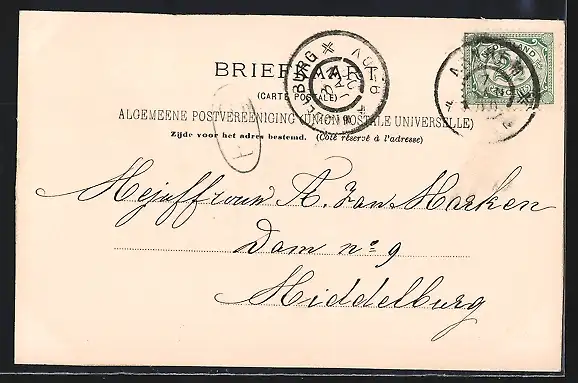 BRIEFKAART
(CARTE POSTALE)
ALGEMEENE POSTVEREENIGING (UNION POSTALE UNIVERSELLE)
Zijde voor het adres bestemd. (Côté réservé à l'adresse)
NEDERLAND
Mejuffrouw A. van Marken
Dam nº 9
Middelburg